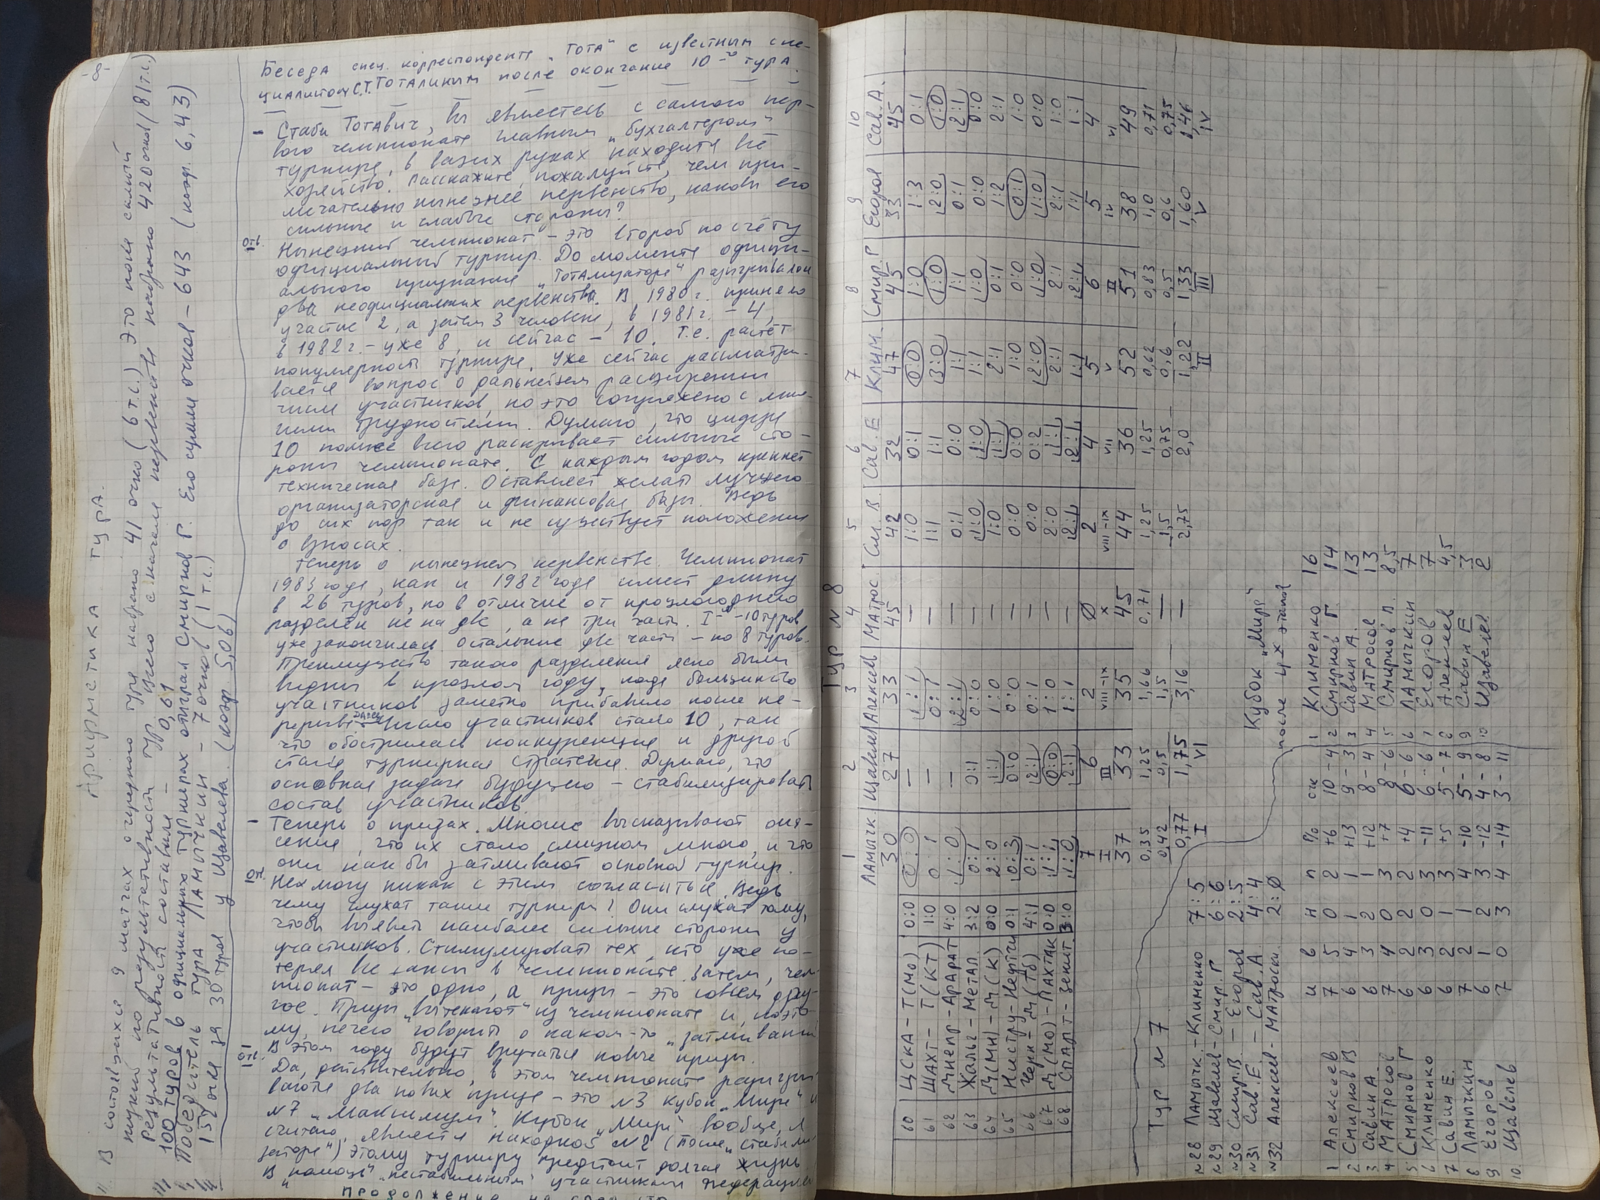 -8-
Арифметика тура.
В состоявшихся 9 матчах очередного тура набрано 41 очко (6 т.с.) Это пока самый
низкий по результативности тур. Всего с начала первенства набрано 420 очков (81 т.с.)
Результативность составила - 0,61
100 туров в официальных турнирах отыграл Смирнов Г. Его сумма очков - 643 (коэф. 6,43)
Победитель тура Ламычкин - 7 очков (1 т.с.)
за 30 туров у Щавелева (коэф. 5,06)
Беседа спец. корреспондента "Тота" с известным спе-
циалистом С.Т. Тоталиным после окончания 10-го тура.
- Стаби Тотавич, вы являетесь с самого пер-
вого чемпионата главным "бухгалтером"
турнира, в ваших руках находится всё
хозяйство. Расскажите, пожалуйста, чем при-
мечательно нынешнее первенство, каковы его
сильные и слабые стороны?
Отв.
Нынешний чемпионат - это второй по счёту
официальный турнир. До момента офици-
ального признания "Тотализатора" разыгрывалось
два неофициальных первенства. В 1980 г. приняло
участие 2, а затем 3 человека, в 1981 г. - 4,
в 1982 г. - уже 8, и сейчас - 10. Т.е. растёт
популярность турнира. Уже сейчас рассматри-
вается вопрос о дальнейшем расширении
числа участников, но это сопряжено с
трудностями. Думаю, что цифра
10 полнее всего раскрывает сильные сто-
роны чемпионата. С каждым годом крепнет
техническая база. Оставляет желать лучшего
организаторская и финансовая базы. Ведь
до сих пор так и не существует положения
о взносах.
Теперь о нынешнем первенстве. Чемпионат
1983 года, как и 1982 года имеет длину
в 26 туров, но в отличие от прошлогоднего
разделён не на две, а на три части. I-я - 10 туров
уже закончилась. Остальные две части - по 8 туров.
Преимущества такого разделения ясно были
видны в прошлом году, когда большинство
участников заметно прибавило после пе-
рерыва. Далее число участников стало 10, так
что обострилась конкуренция и другой
стала турнирная стратегия. Думаю, что
основная задача будущего - стабилизировать
состав участников.
- Теперь о призах. Многие высказывают опа-
сение, что их стало слишком много, и что
они как бы затмевают основной турнир.
Отв.
Не могу никак с этим согласиться. Ведь
чему служат такие турниры? Они служат тому,
чтобы выявить наиболее сильные стороны у
участников. Стимулировать тех, кто уже по-
терял все шансы в чемпионате. Затем, чем-
пионат - это одно, а призы - это совсем дру-
гое. Призы "вытекают" из чемпионата и, поэто-
му, нечего говорить о каком-то "затмевании"
- В этом году будут вручаться новые призы.
Отв.
Да, действительно, в этом чемпионате разыгры-
ваются два новых приза - это №3 Кубок "Мира" и
№7 "Максимум". Кубок "Мира" вообще, я
считаю, является находкой №2 (после "стабили-
затора") этому турниру предстоит долгая жизнь
В "помощь" нестабильным участникам федерация
Продолжение на стр.
Тур №8
1 2 3 4 5 6 7 8 9 10
Ламычк Щавелев Алексеев Матрос См. В Сав. Е Клим. Смир. Г Егоров Сав. А.
30 27 33 45 42 32 47 45 33 45
60 ЦСКА - Т(Мо) 0:0 0:0 — 1:1 — 1:0 0:1 0:0 1:0 1:3 0:1
61 Шахт - Т(КТ) 1:0 0:1 — 0:1 — 1:1 1:1 3:0 1:0 2:0 1:0
62 Днепр - Арарат 4:0 1:0 — 2:1 — 0:1 0:0 1:1 1:1 0:1 2:1
63 Жальг - Метал. 3:2 0:1 0:1 0:0 — 1:0 1:0 1:1 1:0 0:0 0:0
64 Д(Мн) - Д(К) 0:0 2:0 1:1 1:0 — 1:0 1:1 2:1 0:1 1:2 2:1
65 Нистру - Нефтчи 0:1 0:3 0:0 0:0 — 0:0 0:0 1:0 0:0 0:1 1:0
66 Черн - Д(Тб) 4:1 0:1 2:1 0:1 — 0:0 0:2 2:0 1:0 1:0 0:0
67 Д(Мо) - Пахтак 0:0 1:1 0:0 1:0 — 2:0 1:1 2:1 2:1 2:1 1:0
68 Спарт - Зенит 3:0 1:0 2:1 1:1 — 2:1 2:1 1:1 2:1 1:1 1:1
7 6 2 Ø 2 4 5 6 5 4
I III VIII-IX X VIII-IX VII V II IV VI
37 33 35 45 44 36 52 51 38 49
0,35 1,25 1,66 0,71 1,25 1,25 0,62 0,83 1,0 0,71
0,42 0,5 1,5 — 1,5 0,75 0,6 0,5 0,6 0,75
0,77 1,75 3,16 — 2,75 2,0 1,22 1,33 1,60 1,46
I VI II III V IV
Тур №7
№28 Ламычк. - Клименко 7:5
№29 Щавелев - Смир. Г 6:6
№30 Смир. В - Егоров 2:5
№31 Сав. Е - Сав. А 4:4
№32 Алексеев - Матросов. 2:Ø
и в н п р/о очк
1 Алексеев 7 5 0 2 +6 10 - 4
2 Смирнов В 6 4 1 1 +13 9 - 3
3 Савин А 6 3 2 1 +12 8 - 4
4 Матросов 7 4 0 3 +7 8 - 6
5 Смирнов Г 6 2 2 2 +4 6 - 6
6 Клименко 6 3 0 3 -11 6 - 6
7 Савин Е. 6 2 1 3 +5 5 - 7
8 Ламычкин 7 2 1 4 -10 5 - 9
9 Егоров 6 1 2 3 -12 4 - 8
10. Щавелев 7 0 3 4 -14 3 - 11
Кубок "Мира"
после 4х этапов
1 Клименко 16
2 Смирнов Г 14
3 Савин А. 13
4 Матросов 13
5 Смирнов В. 8,5
6 Ламычкин 7
7 Егоров 7
8 Алексеев 4,5
9 Савин Е 3
10 Щавелев 2